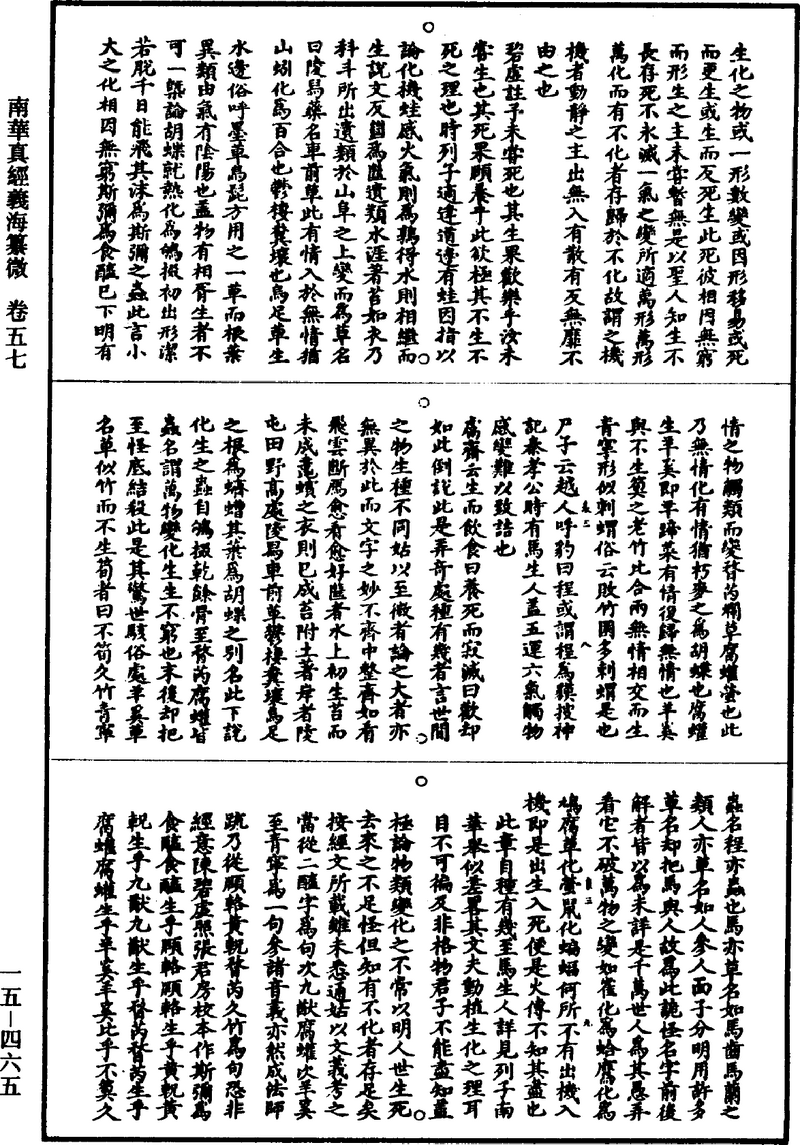 南華真經義海纂微　卷五七
生化之物或一形數變或因形移易或死
而更生或生而反死生此死彼相因無窮
而形生之主未嘗暫無是以聖人知生不
長存死不永滅一氣之變所適萬形萬形
萬化而有不化者存歸於不化故謂之機
機者動靜之主出無入有散有反無靡不
由之也
碧虛註予未嘗死也其生果歡樂乎汝未
嘗生也其死果頤養乎此欲極其不生不
死之理也時列子適達道邊有蛙因指以
論化機蛙感火氣則為鶉得水則相繼而
生說文反𢇍為㡭遺類水涯著苔如衣乃
科斗所出遺類於山阜之上變而為草名
曰陵舄藥名車前草此有情入於無情猶
山蚓化為百合也鬱棲糞壤也烏足草生
水邊俗呼墨草烏髭方用之一草而根葉
異類由氣有陰陽也蓋物有相胥生者不
可一槩論胡蝶就熱化為鴝掇初出形潔
若脫千日能飛其沫為斯彌之蟲此言小
大之化相因無窮斯彌為食醯已下明有
情之物觸類而變瞀芮燭草腐蠸螢也此
乃無情化有情猶朽麥之為胡蝶也腐蠸
生羊奚即羊蹄菜有情復歸無情也羊奚
與不生筍之老竹比合兩無情相交而生
青寧形似刺蝟俗云敗竹園多刺蝟是也
尸子云越人呼豹曰程或謂程為貘搜神
記秦孝公時有馬生人蓋五運六氣觸物
感變難以致詰也
鬳齋云生而飲食曰養死而寂滅曰歡却
如此倒說此是弄奇處種有幾者言世間
之物生種不同姑以至微者論之大者亦
無異於此而文字之妙不齊中整齊如看
飛雲斷鴈愈看愈好㡭者水上初生苔而
未成鼃蠙之衣則已成苔附土著岸者陵
屯田野高處陵舄車前草鬱棲糞壤烏足
之根為蠐螬其葉為胡蝶之別名此下說
化生之蟲自鴝掇乾餘骨至瞀芮腐蠸皆
蟲名謂萬物變化生生不窮也末後却把
至怪底結殺此是其驚世駭俗處羊奚草
名草似竹而不生筍者曰不筍久竹青寧
蟲名程亦蟲也馬亦草名如馬齒馬蘭之
類人亦草名如人參人面子分明用許多
草名却把馬與人故為此詭怪名字前後
解者皆以為未詳是千萬世人為其愚弄
看它不破萬物之變如雀化為蛤鷹化為
鳩腐草化螢鼠化蝙蝠何所不有出機入
機即是出生入死便是火傳不知其盡也
此章自種有幾至馬生人詳見列子南
華舉似差畧其文夫動植生化之理耳
目不可徧及非格物君子不能盡知蓋
極論物類變化之不常以明人世生死
去來之不足怪但知有不化者存足矣
按經文所載雖未悉通姑以文義考之
當從二醯字為句次九猷腐蠸次羊奚
至青寧為一句參諸音義亦然成法師
䟽乃從頤輅黃軦瞀芮久竹為句恐非
經意陳碧虛照張君房校本作斯彌為
食醯食醯生乎頤輅頤輅生乎黃軦黃
軦生乎九猷九猷生乎瞀芮瞀芮生乎
腐蠸腐蠸生乎羊奚羊奚比乎不筍久
一五—四六五